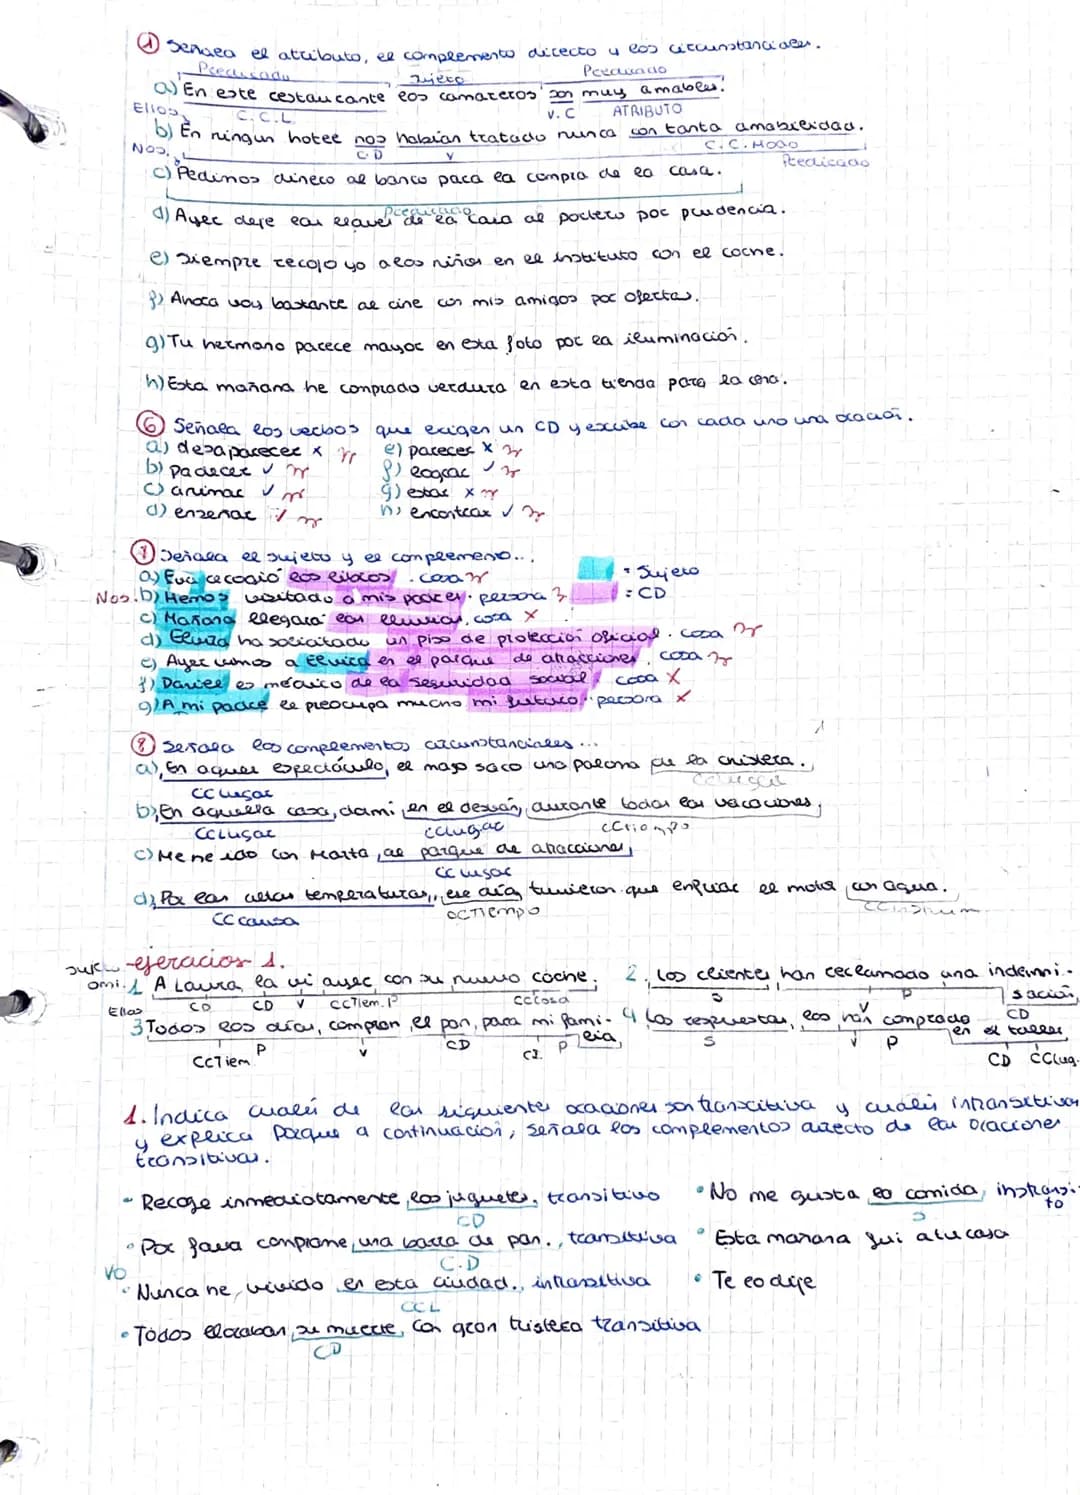 ① Señala el atributo, el complemento directo y los circunstanciales.
Predicado Sujeto Predicado
a) En este restaurante los camareros son muy amables.
Ellos C.C.L V.C ATRIBUTO
b) En ningun hotel nos habían tratado nunca con tanta amabilidad.
Nos. C.D V C.C.MODO Predicado
c) Pedimos dinero al banco para la compra de la casa.
Predicado
d) Ayer deje las llaves de la casa al portero por prudencia.
e) Siempre recojo yo a los niños en el instituto con el coche.
f) Ahora voy bastante al cine con mis amigos por ofertas.
g) Tu hermano parece mayor en esta foto por la iluminación.
h) Esta mañana he comprado verdura en esta tienda para la cena.
⑥ Señala los verbos que exigen un CD y escribe con cada uno una oración.
a) desaparecer x e) parecer x
b) padecer ✓ f) lograr ✓
c) animar ✓ g) estar x
d) enseñar ✓ h) encontrar ✓
⑦ Señala el sujeto y el complemeno...
a) Eva recogió los libros. cosa = Sujeto
Nos. b) Hemos visitado a mis padres. persona = CD
c) Mañana llegará las lluvias. cosa x
d) Elvira ha solicitado un piso de protección oficial. cosa
e) Ayer vimos a Elvira en el parque de atracciones. cosa
f) Daniel es médico de la seguridad social. cosa x
g) A mi padre le preocupa mucho mi futuro. persona x
⑧ Señala los complementos circunstanciales...
a) En aquel espectáculo, el mago saco una paloma de la chistera.
CC Lugar CC Lugar
b) En aquella casa, dormi en el desván, durante todas las vacaciones.
CC Lugar CC Lugar CC Tiempo
c) Me he ido con Marta, al parque de atracciones,
CC Lugar
d) Por las altas temperaturas, ese día, tuvieron que enfriar el motor con agua.
CC causa CC Tiempo CC Instrum
-ejeracios 1.
omi. 1 A Laura la vi ayer con su nuevo coche. 2. Los clientes han reclamado una indemni-
CD CD V CCTiem. P CC cosa S V P sación,
Ellos CD
3 Todos los días, compran el pan, para mi fami- 4 Las respuestas, los han comprado
lia, en el taller
CCTiem P V CD CI. P S V P CD CCLug.
1. Indica cuales de las siguiente oraciones son transcitiva y cuales intransitivas
y explica porque a continuación, señala los complementos directo de las oraciones
transitivas.
- Recoge inmediatamente los juguetes, transitivo • No me gusta la comida, instransi-
CD S to
• Por favor comprame una barra de pan., transitiva • Esta mañana fui a tu casa
C.D
YO • Nunca he vivido en esta ciudad., intransitiva • Te lo dije
CCL
• Todos lloraban su muerte, con gran tristeza transitiva
CD